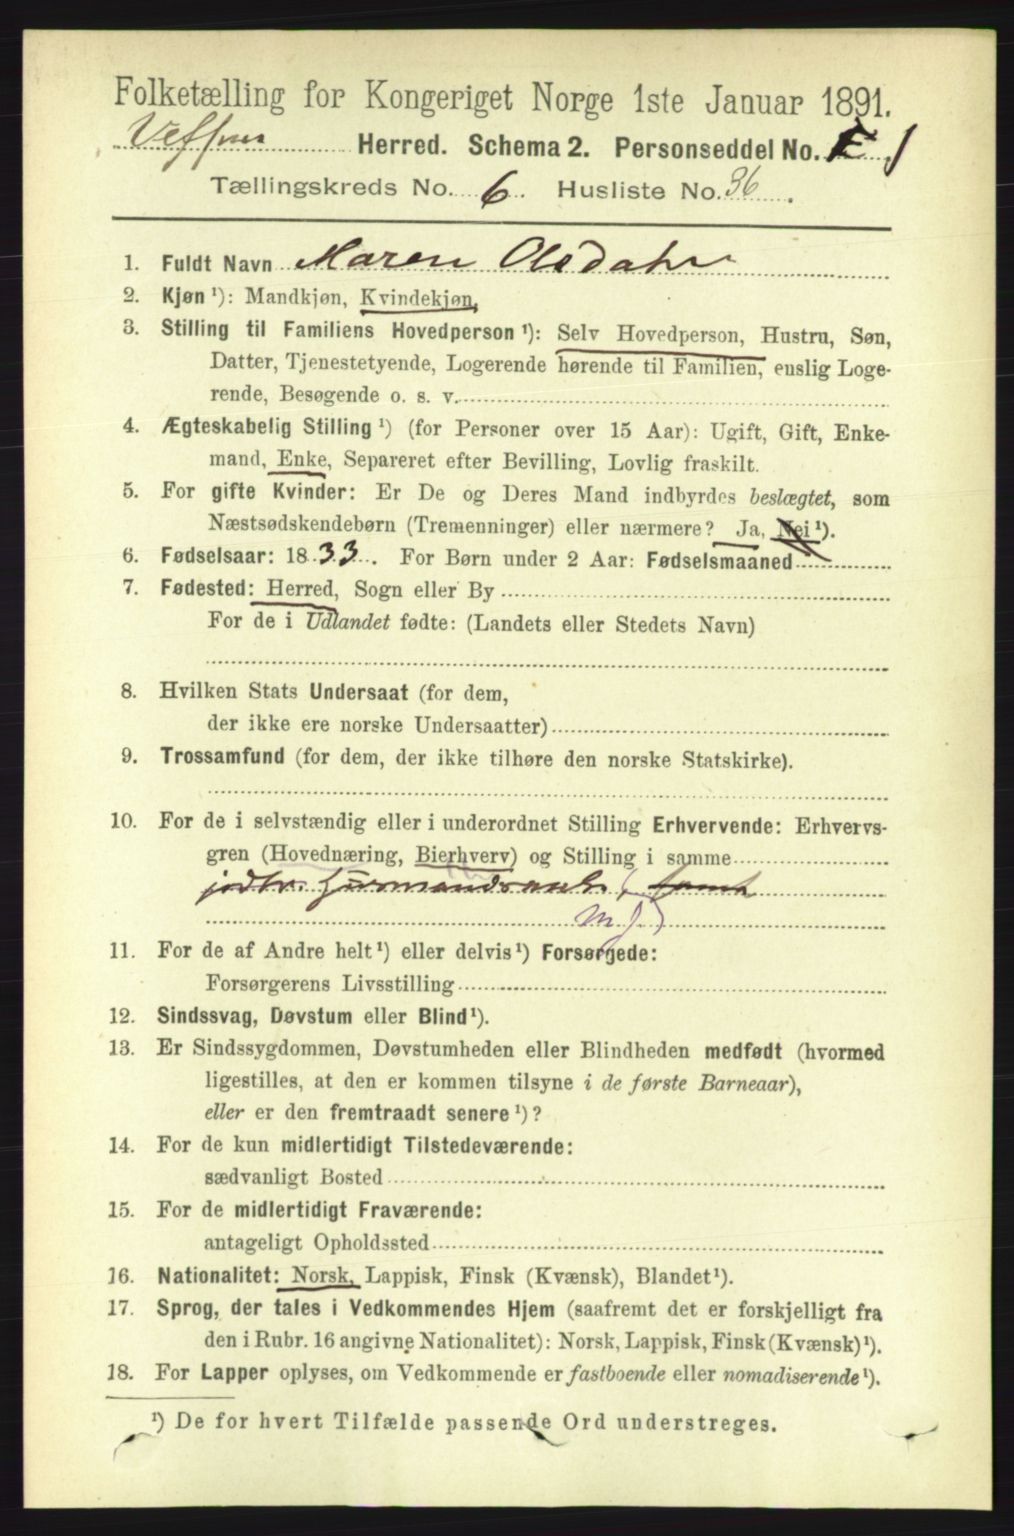 Folketælling for Kongeriget Norge 1ste Januar 1891.
Vefsen Herred. Schema 2. Personseddel No. 1
Tællingskreds No. 6 Husliste No. 36.
1. Fuldt Navn Maren Olsdatr
2. Kjøn ¹): Mandkjøn, Kvindekjøn,
3. Stilling til Familiens Hovedperson ¹): Selv Hovedperson, Hustru, Søn,
Datter, Tjenestetyende, Logerende hørende til Familien, enslig Loge-
rende, Besøgende o. s. v.
4. Ægteskabelig Stilling ¹) (for Personer over 15 Aar): Ugift, Gift, Enke-
mand, Enke, Separeret efter Bevilling, Lovlig fraskilt.
5. For gifte Kvinder: Er De og Deres Mand indbyrdes beslægtet, som
Næstsødskendebørn (Tremenninger) eller nærmere? Ja, Nei ¹).
6. Fødselsaar: 1833. For Børn under 2 Aar: Fødselsmaaned
7. Fødested: Herred, Sogn eller By
For de i Udlandet fødte: (Landets eller Stedets Navn)
8. Hvilken Stats Undersaat (for dem,
der ikke ere norske Undersaatter)
9. Trossamfund (for dem, der ikke tilhøre den norske Statskirke).
10. For de i selvstændig eller i underordnet Stilling Erhvervende: Erhvervs-
gren (Hovednæring, Bierhverv) og Stilling i samme
m. J.
11. For de af Andre helt ¹) eller delvis ¹) Forsørgede:
Forsørgerens Livsstilling
12. Sindssvag, Døvstum eller Blind ¹).
13. Er Sindssygdommen, Døvstumheden eller Blindheden medfødt (hvormed
ligestilles, at den er kommen tilsyne i de første Barneaar),
eller er den fremtraadt senere ¹)?
14. For de kun midlertidigt Tilstedeværende:
sædvanligt Bosted
15. For de midlertidigt Fraværende:
antageligt Opholdssted
16. Nationalitet: Norsk, Lappisk, Finsk (Kvænsk), Blandet ¹).
17. Sprog, der tales i Vedkommendes Hjem (saafremt det er forskjelligt fra
den i Rubr. 16 angivne Nationalitet): Norsk, Lappisk, Finsk (Kvænsk) ¹).
18. For Lapper oplyses, om Vedkommende er fastboende eller nomadiserende ¹).
¹) De for hvert Tilfælde passende Ord understreges.